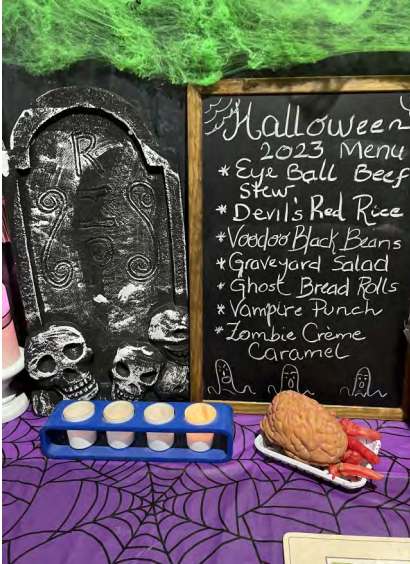 RIP
Halloween
2023 Menu
* Eye Ball Beef
Stew
* Devil's Red Rice
* Voodoo Black Beans
* Graveyard Salad
* Ghost Bread Rolls
* Vampire Punch
* Zombie Crème
Caramel